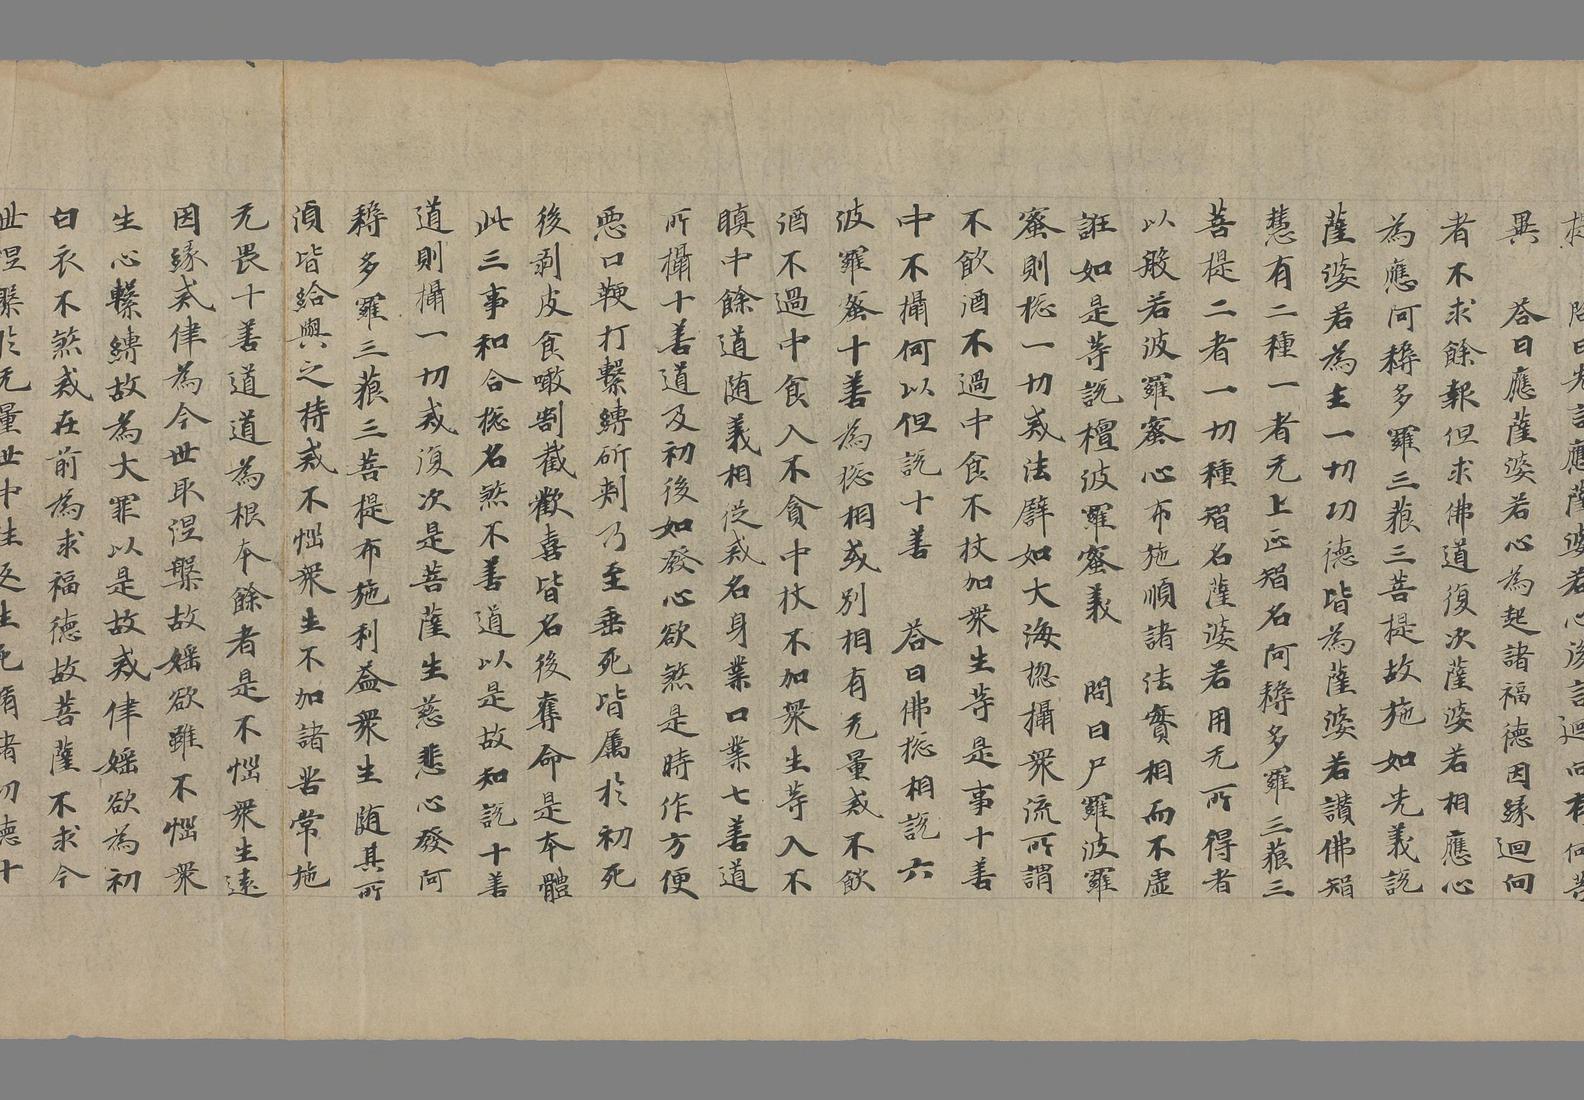 提　問曰先言應薩婆若心後言迴向有何等
異　答曰應薩婆若心為起諸福德因緣迴向
者不求餘報但求佛道復次薩婆若相應心
為應阿耨多羅三藐三菩提故施如先義說
薩婆若為主一切功德皆為薩婆若讚佛智
慧有二種一者无上正智名阿耨多羅三藐三
菩提二者一切種智名薩婆若用无所得者
以般若波羅蜜心布施順諸法實相而不虛
誑如是等說檀波羅蜜義　問曰尸羅波羅
蜜則惣一切戒法譬如大海惣攝衆流所謂
不飲酒不過中食不杖加衆生等是事十善
中不攝何以但說十善　答曰佛惣相說六
波羅蜜十善為惣相戒別相有无量戒不飲
酒不過中食入不貪中杖不加衆生等入不
瞋中餘道随義相従戒名身業口業七善道
所攝十善道及初後如發心欲煞是時作方便
惡口鞕打繫縛斫刾乃至垂死皆屬於初死
後剥皮食噉割截歡喜皆名後奪命是本體
此三事和合惣名煞不善道以是故知說十善
道則攝一切戒復次是菩薩生慈悲心發阿
耨多羅三藐三菩提布施利益衆生随其所
湏皆給與之持戒不惱衆生不加諸苦常施
无畏十善道道為根本餘者是不惱衆生遠
因緣戒律為今世取涅槃故婬欲雖不惱衆
生心繫縛故為大罪以是故戒律婬欲為初
白衣不煞戒在前為求福德故菩薩不求今
世涅槃於无量世中往返生死脩諸功德十